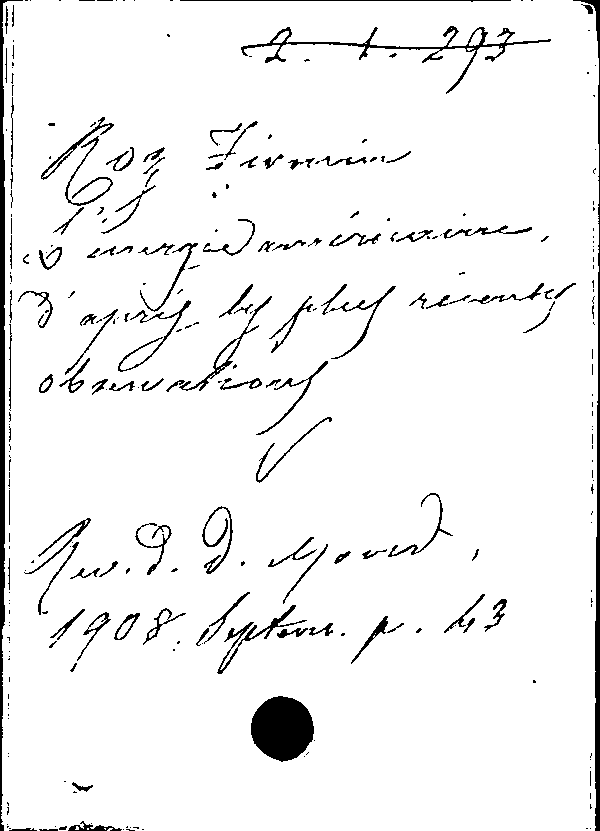 2. 1. 293
Roz Firmin
L'énergie américaine,
d'après les plus récentes
observations
Rev. d. d. Mond,
1908. Septem. p. 43